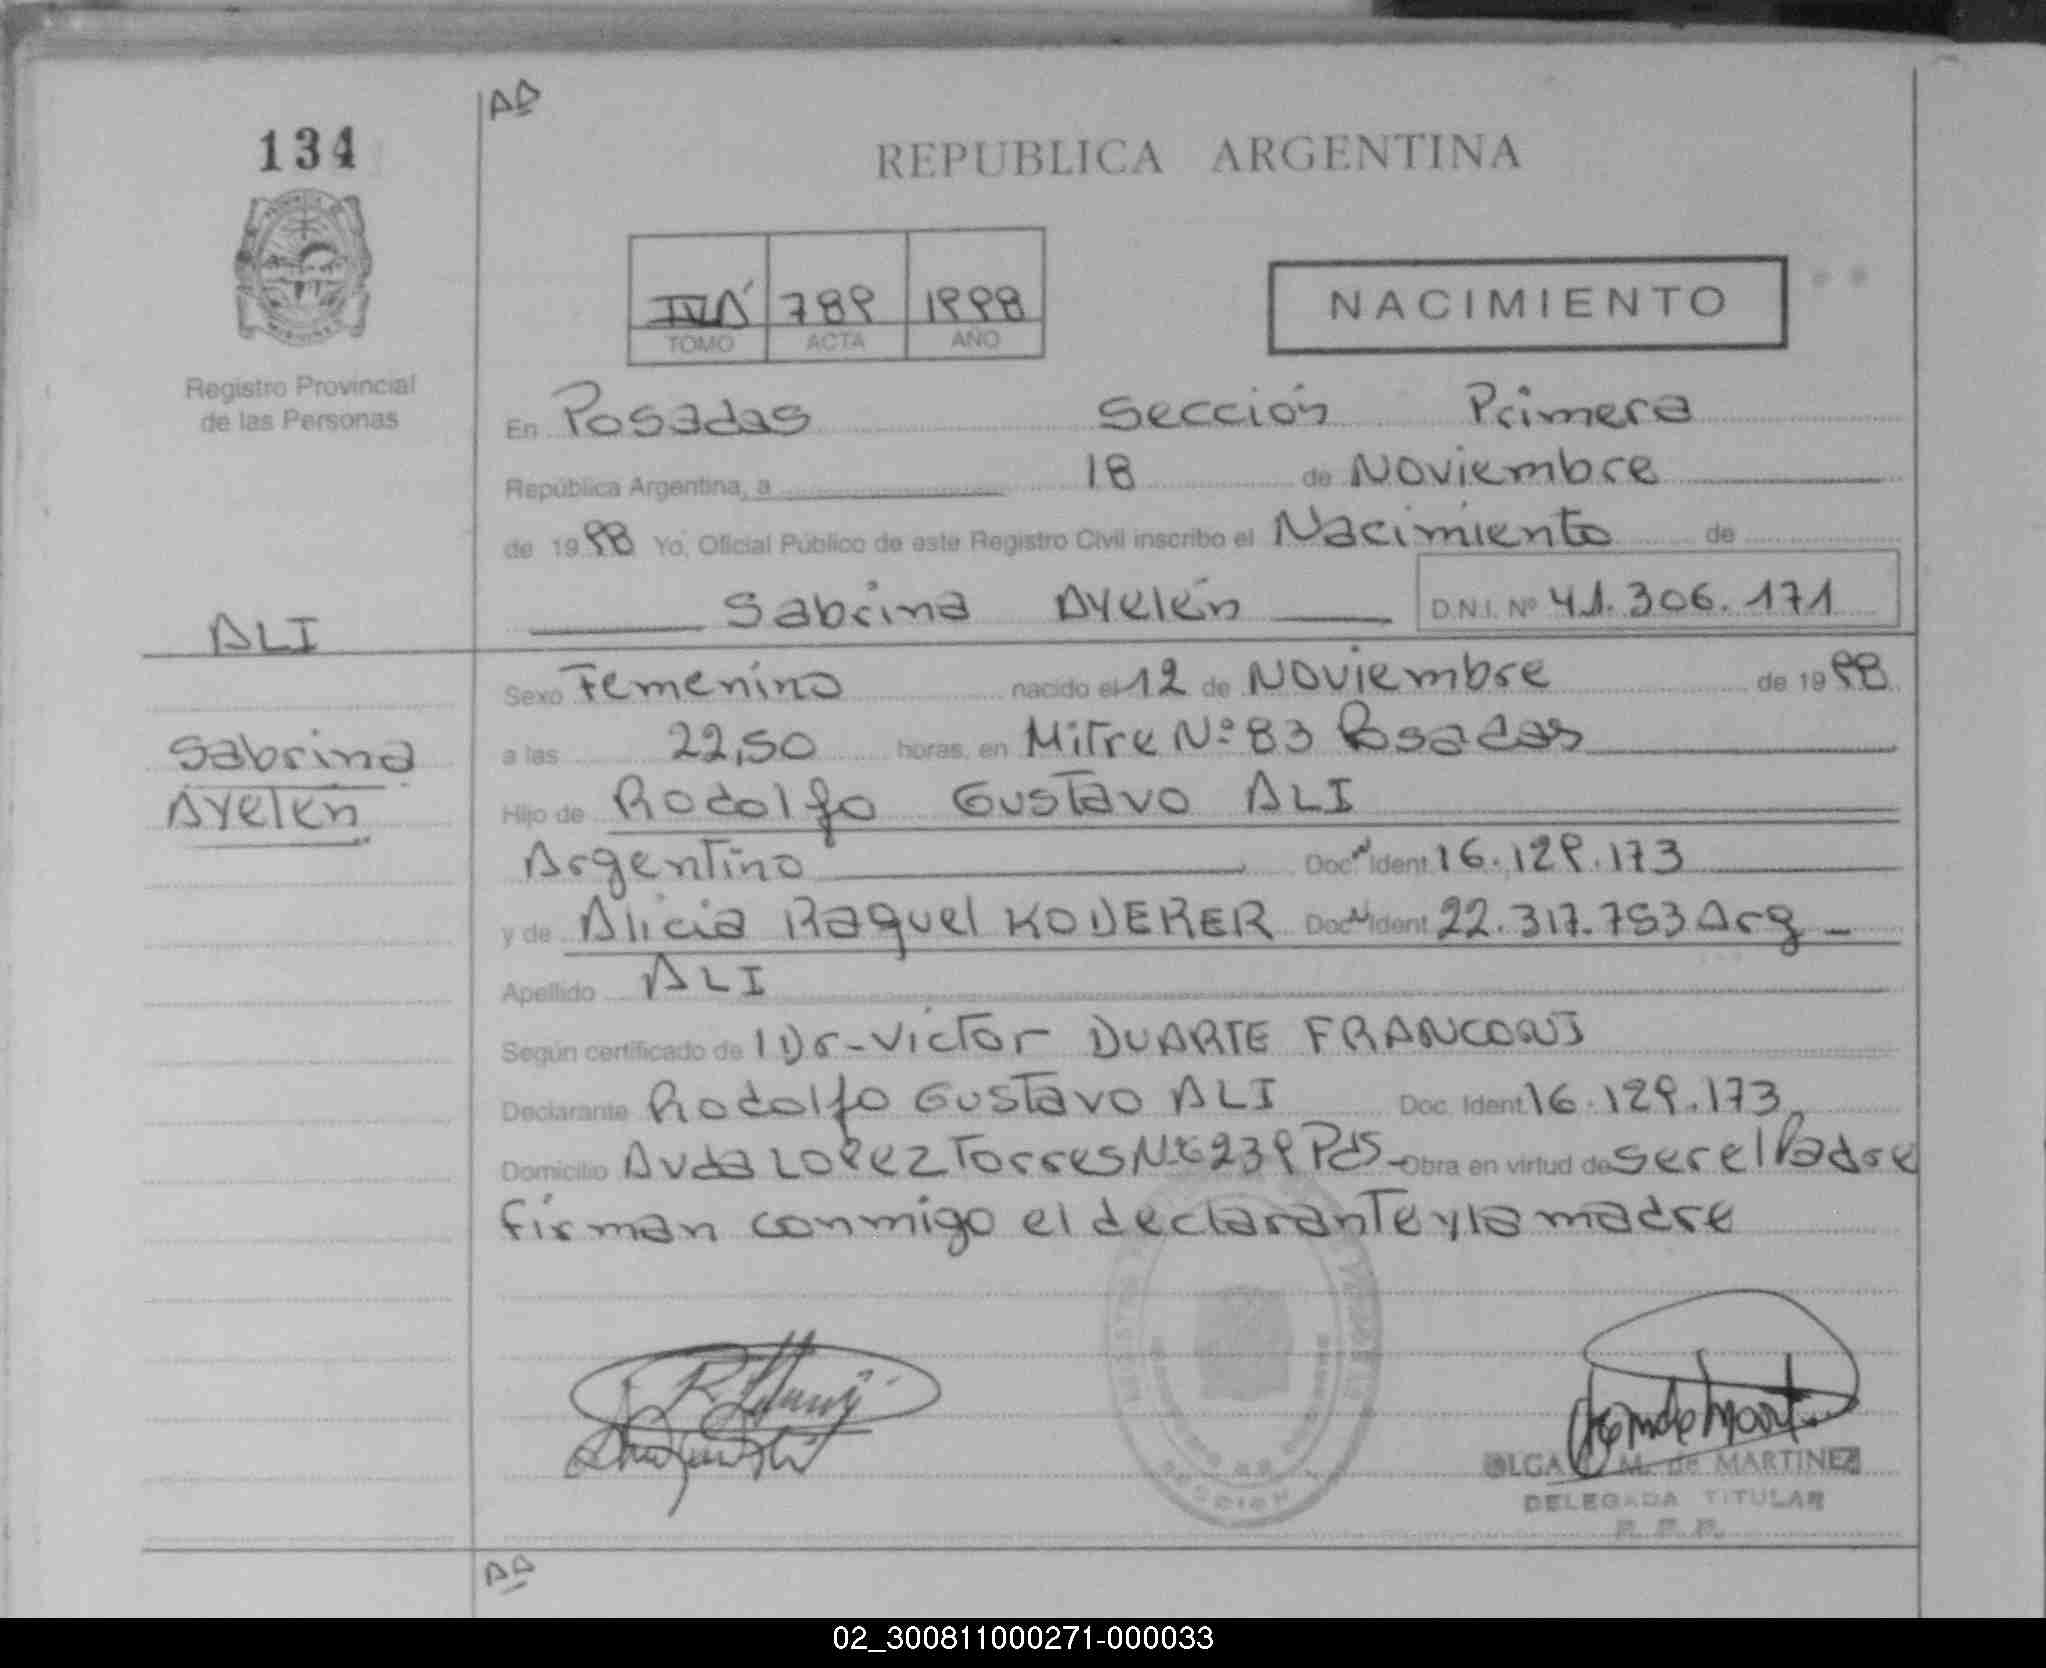 AD
134
REPUBLICA ARGENTINA
IVA 789 1998
TOMO ACTA AÑO
NACIMIENTO
Registro Provincial
de las Personas
En Posadas Sección Primera
República Argentina, a 18 de Noviembre
de 1998 Yo, Oficial Público de este Registro Civil inscribo el Nacimiento de
Sabrina Ayelén D.N.I. Nº 41.306.171
ALI
Sexo Femenino nacido el 12 de Noviembre de 1998
Sabrina
Ayelén
a las 22,50 horas, en Mitre Nº 83 Posadas
Hijo de Rodolfo Gustavo ALI
Argentino Doc. Ident. 16.129.173
y de Alicia Raquel KODERER Doc. Ident. 22.317.753 Arg
Apellido ALI
Según certificado de Dr. Victor DUARTE
Declarante Rodolfo Gustavo ALI Doc. Ident. 16.129.173
Domicilio Avda LOPEZ Torres Pds Obra en virtud de ser el Padre
firman conmigo el declarante y la madre
OLGA M. de MARTINEZ
DELEGADA TITULAR
R. P. P.
02_300811000271-000033